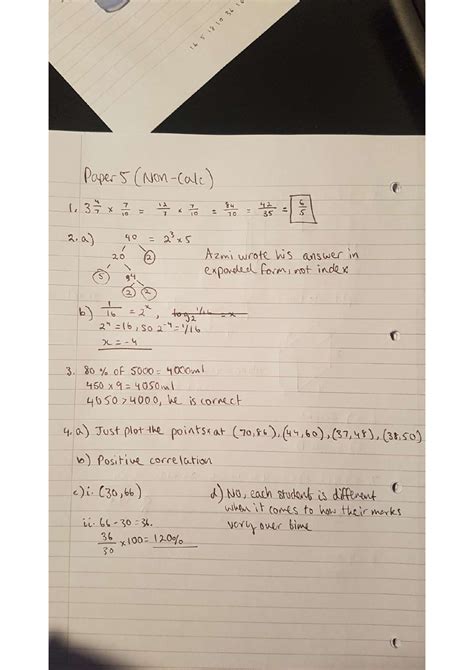 16 5 12 10 36
Paper 5 (Non-Calc)
1. 3 4/7 × 7/10 = 12/7 × 7/10 = 84/70 = 42/35 = 6/5
2. a) 40 = 2³ × 5
20 2
5 4
2 2
Azmi wrote his answer in
expanded form, not index
b) 1/16 = 2ˣ, log2 1/16 = x
2⁴ = 16, so 2⁻⁴ = 1/16
x = -4
3. 80% of 5000 = 4000ml
450 × 9 = 4050ml
4050 > 4000, he is correct
4. a) Just plot the points at (70,86), (44,60), (37,48), (38,50)
b) Positive correlation
c) i. (30,66)
ii. 66 - 30 = 36.
36/30 × 100 = 120%
d) No, each student is different
when it comes to how their marks
vary over time